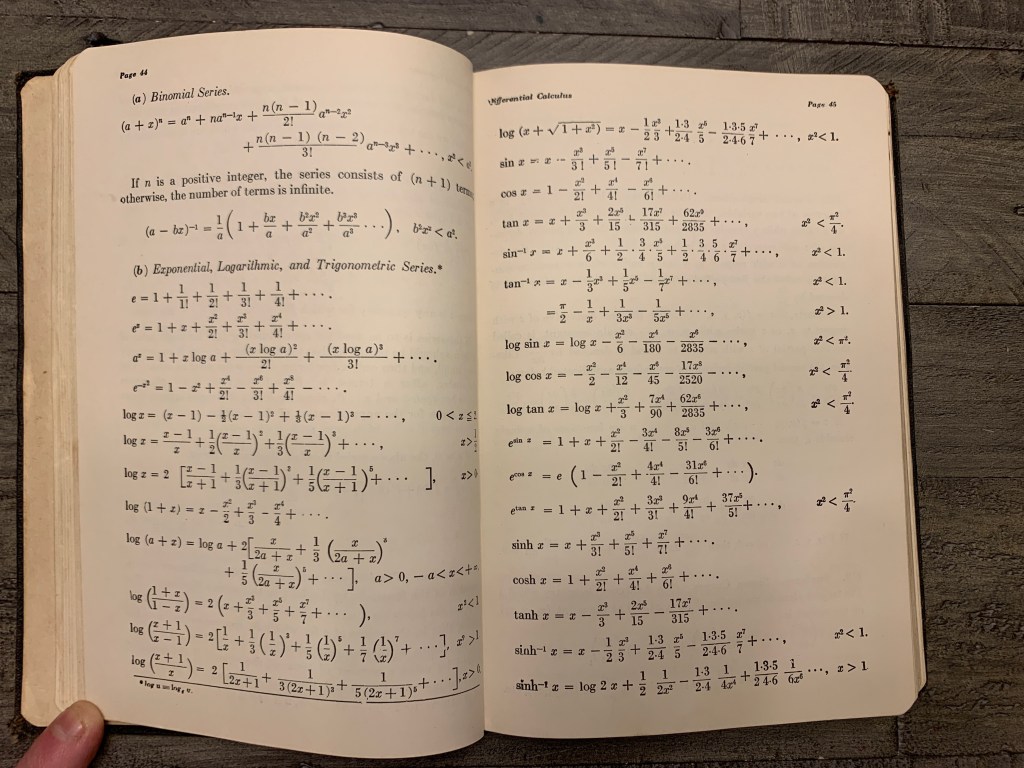 Page 44
(a) Binomial Series.
(a + x)ⁿ = aⁿ + naⁿ⁻¹x + n(n − 1)/2! aⁿ⁻²x²
+ n(n − 1) (n − 2)/3! aⁿ⁻³x³ + · · ·, x² <
If n is a positive integer, the series consists of (n + 1)
otherwise, the number of terms is infinite.
(a − bx)⁻¹ = 1/a (1 + bx/a + b²x²/a² + b³x³/a³ · · ·), b²x² < a².
(b) Exponential, Logarithmic, and Trigonometric Series.*
e = 1 + 1/1! + 1/2! + 1/3! + 1/4! + · · ·.
eˣ = 1 + x + x²/2! + x³/3! + x⁴/4! + · · ·.
aˣ = 1 + x log a + (x log a)²/2! + (x log a)³/3! + · · ·.
e⁻ˣ² = 1 − x² + x⁴/2! − x⁶/3! + x⁸/4! − · · ·.
log x = (x − 1) − ½(x − 1)² + ⅓(x − 1)³ − · · ·, 0 < x ≤
log x = (x − 1)/x + 1/2 ((x − 1)/x)² + 1/3 ((x − 1)/x)³ + · · ·, x >
log x = 2 [(x − 1)/(x + 1) + 1/3 ((x − 1)/(x + 1))³ + 1/5 ((x − 1)/(x + 1))⁵ + · · · ], x >
log (1 + x) = x − x²/2 + x³/3 − x⁴/4 + · · ·.
log (a + x) = log a + 2[x/(2a + x) + 1/3 (x/(2a + x))³
+ 1/5 (x/(2a + x))⁵ + · · ·], a > 0, − a < x < +
log ((1 + x)/(1 − x)) = 2 (x + x³/3 + x⁵/5 + x⁷/7 + · · · ), x² < 1
log ((x + 1)/(x − 1)) = 2[1/x + 1/3 (1/x)³ + 1/5 (1/x)⁵ + 1/7 (1/x)⁷ + · · ·], x² > 1
log ((x + 1)/x) = 2 [1/(2x + 1) + 1/(3 (2x + 1)³) + 1/(5 (2x + 1)⁵) + · · ·], x > 0
* log u = logₑ u.
Differential Calculus
Page 45
log (x + √(1 + x²)) = x − 1/2 x³/3 + 1·3/2·4 x⁵/5 − 1·3·5/2·4·6 x⁷/7 + · · ·, x² < 1.
sin x = x − x³/3! + x⁵/5! − x⁷/7! + · · ·.
cos x = 1 − x²/2! + x⁴/4! − x⁶/6! + · · ·.
tan x = x + x³/3 + 2x⁵/15 + 17x⁷/315 + 62x⁹/2835 + · · ·, x² < π²/4.
sin⁻¹ x = x + x³/6 + 1/2 · 3/4 · x⁵/5 + 1/2 · 3/4 · 5/6 · x⁷/7 + · · ·, x² < 1.
tan⁻¹ x = x − 1/3 x³ + 1/5 x⁵ − 1/7 x⁷ + · · ·, x² < 1.
= π/2 − 1/x + 1/3x³ − 1/5x⁵ + · · ·, x² > 1.
log sin x = log x − x²/6 − x⁴/180 − x⁶/2835 − · · ·, x² < π².
log cos x = − x²/2 − x⁴/12 − x⁶/45 − 17x⁸/2520 − · · ·, x² < π²/4
log tan x = log x + x²/3 + 7x⁴/90 + 62x⁶/2835 + · · ·, x² < π²/4.
eˢⁱⁿ ˣ = 1 + x + x²/2! − 3x⁴/4! − 8x⁵/5! − 3x⁶/6! + · · ·.
eᶜᵒˢ ˣ = e (1 − x²/2! + 4x⁴/4! − 31x⁶/6! + · · ·).
eᵗᵃⁿ ˣ = 1 + x + x²/2! + 3x³/3! + 9x⁴/4! + 37x⁵/5! + · · ·, x² < π²/4.
sinh x = x + x³/3! + x⁵/5! + x⁷/7! + · · ·.
cosh x = 1 + x²/2! + x⁴/4! + x⁶/6! + · · ·.
tanh x = x − x³/3 + 2x⁵/15 − 17x⁷/315 + · · ·.
sinh⁻¹ x = x − 1/2 x³/3 + 1·3/2·4 x⁵/5 − 1·3·5/2·4·6 x⁷/7 + · · ·, x² < 1.
sinh⁻¹ x = log 2x + 1/2 1/2x² − 1·3/2·4 1/4x⁴ + 1·3·5/2·4·6 1/6x⁶ · · ·, x > 1